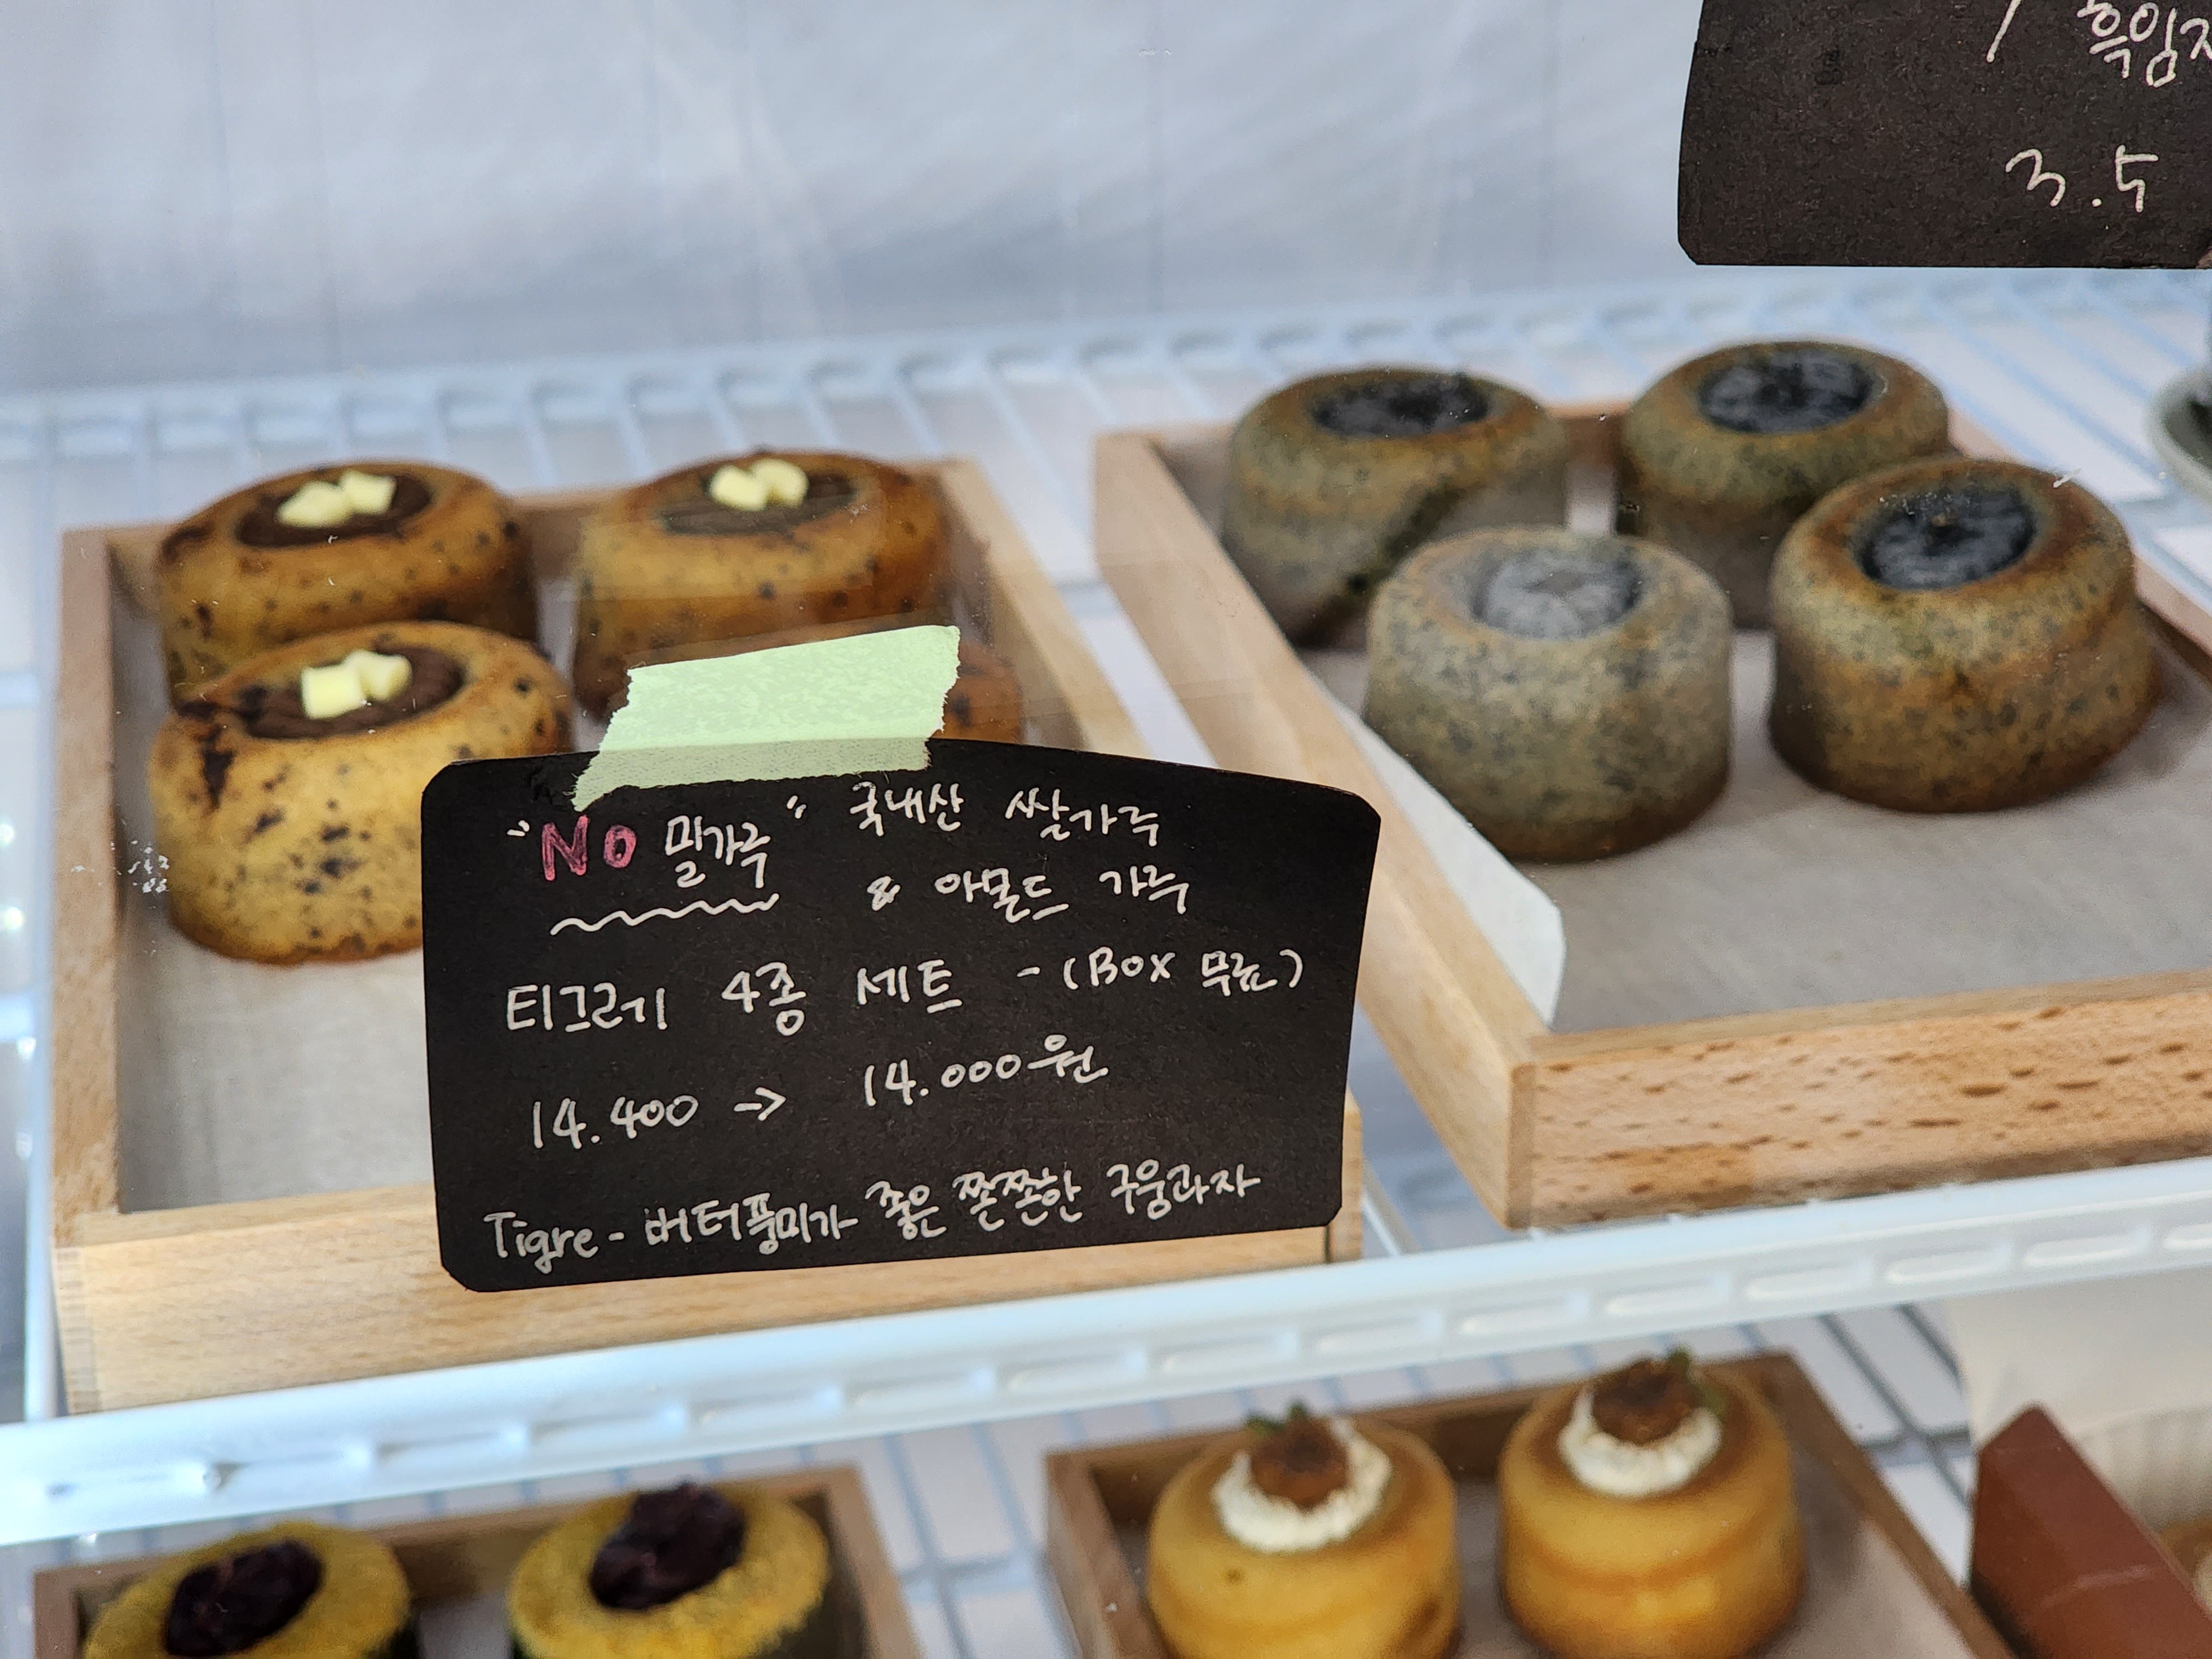 흑임자
3.5
"No 밀가루" 국내산 쌀가루
& 아몬드 가루
티그레 4종 세트 - (Box 무료)
14.400 → 14.000원
Tigre - 버터풍미가 좋은 쫀쫀한 구움과자